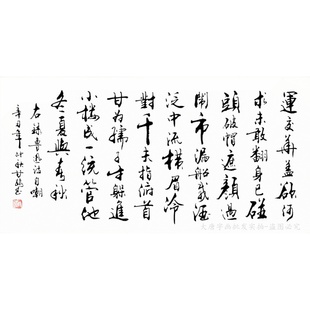 運交華蓋欲何
求未敢翻身已碰
頭破帽遮顏過
鬧市漏船載酒
泛中流橫眉冷
對千夫指俯首
甘為孺子牛躲進
小樓成一統管他
冬夏與春秋
右錄魯迅詩自嘲
年仲秋